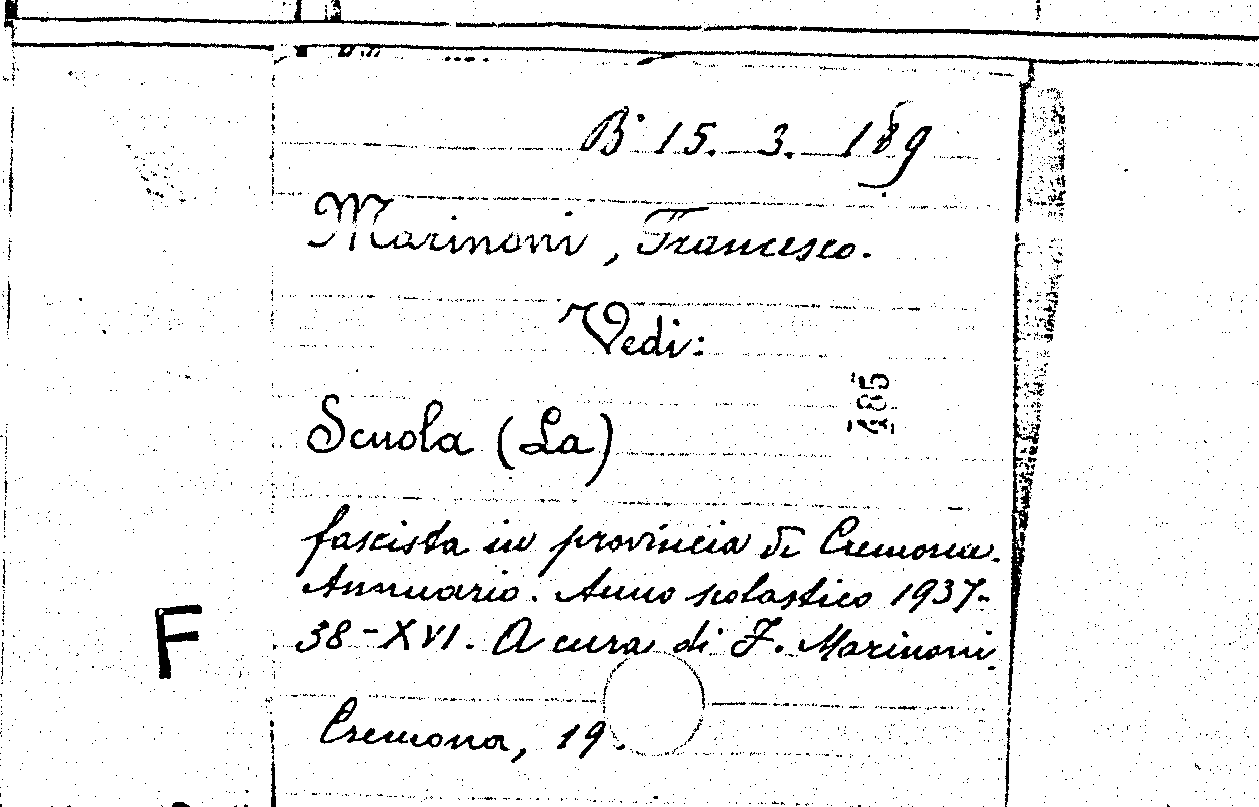 B· 15. 3. 189
Marinoni, Francesco.
Vedi:
185
Scuola (La)
fascista in provincia di Cremona.
Annuario. Anno scolastico 1937-
38-XVI. A cura di F. Marinoni.
F
Cremona, 19.